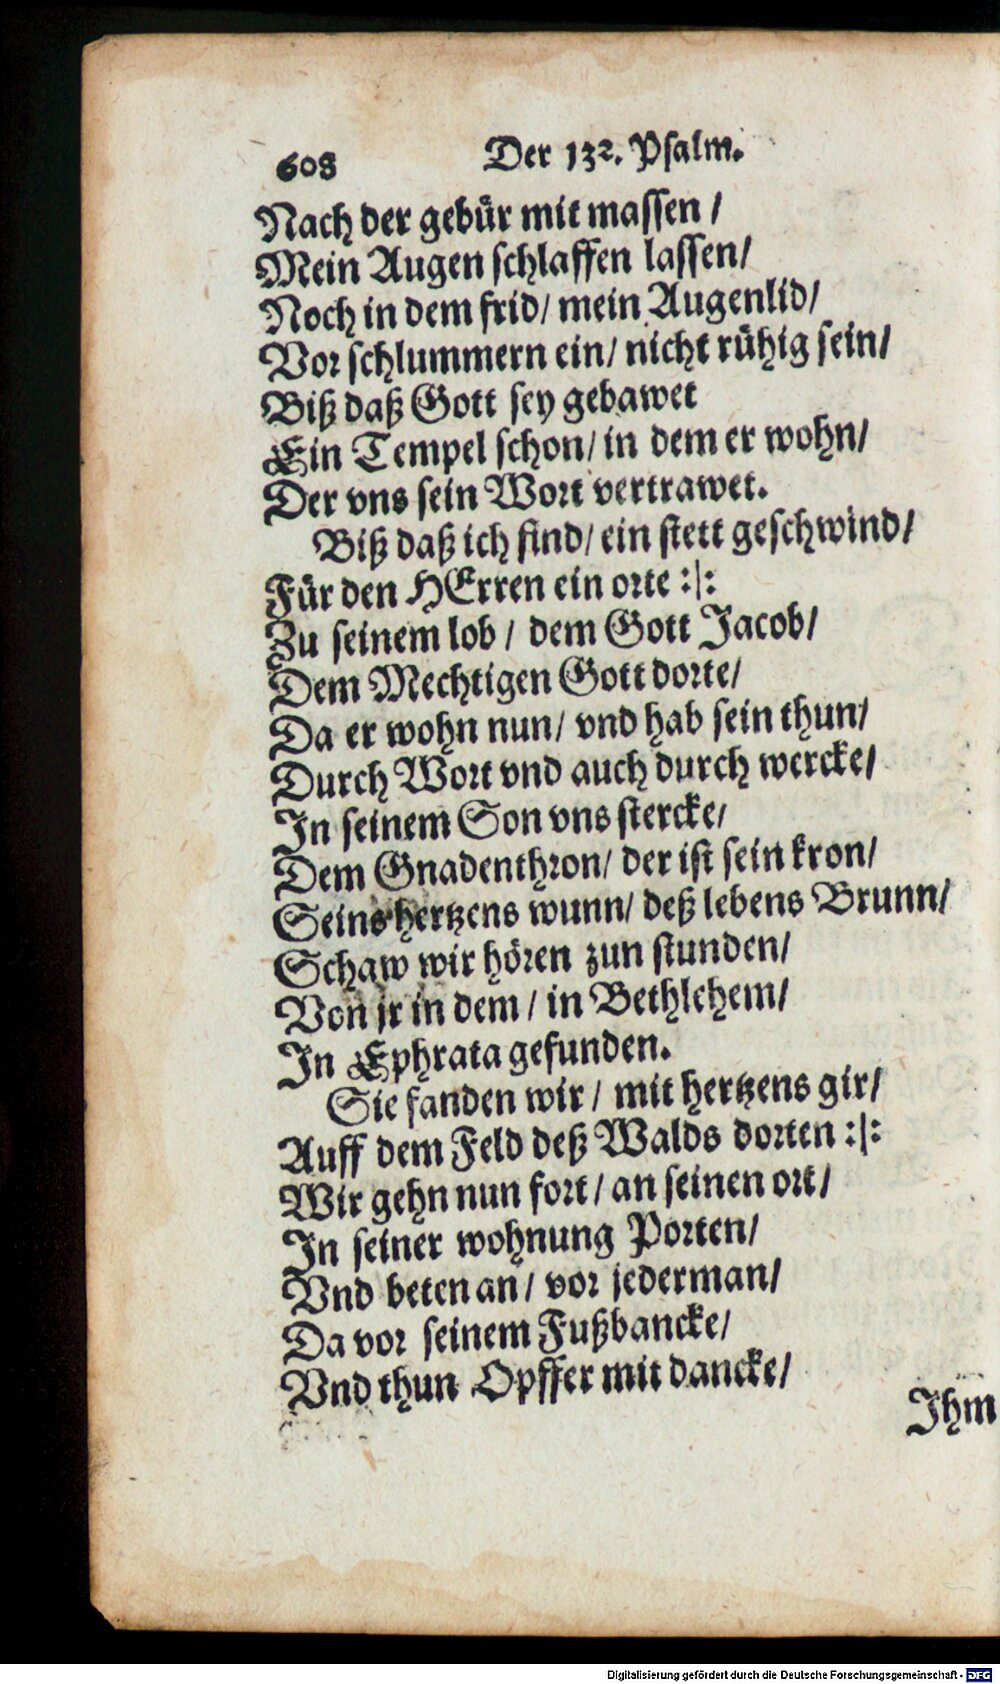 608 Der 132. Psalm.
Nach der gebür mit massen /
Mein Augen schlaffen lassen/
Noch in dem frid/ mein Augenlid/
Vor schlummern ein/ nicht rühig sein/
Biß daß Gott sey gebawet
Ein Tempel schon/ in dem er wohn/
Der vns sein Wort vertrawet.
Biß daß ich find/ ein stett geschwind/
Für den HErren ein orte :|:
Zu seinem lob / dem Gott Jacob/
Dem Mechtigen Gott dorte/
Da er wohn nun/ vnd hab sein thun/
Durch Wort vnd auch durch wercke/
In seinem Son vns stercke/
Dem Gnadenthron/ der ist sein kron/
Seins hertzens wunn/ deß lebens Brunn/
Schaw wir hören zun stunden/
Von jr in dem / in Bethlehem/
In Ephrata gefunden.
Sie fanden wir / mit hertzens gir/
Auff dem Feld deß Walds dorten :|:
Wir gehn nun fort / an seinen ort/
In seiner wohnung Porten/
Vnd beten an / vor jederman/
Da vor seinem Fußbancke/
Vnd thun Opffer mit dancke/
Ihm
Digitalisierung gefördert durch die Deutsche Forschungsgemeinschaft - DFG